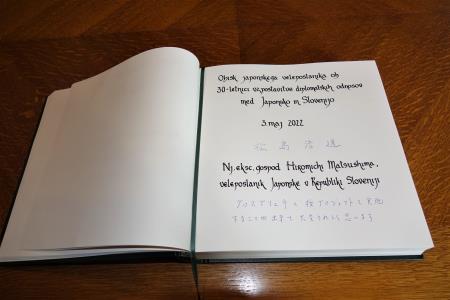 Obisk japonskega veleposlanika ob
30-letnici vzpostavitve diplomatskih odnosov
med Japonsko in Slovenijo
3. maj 2022
松島浩道
Nj. eksc. gospod Hiromichi Matsushima,
veleposlanik Japonske v Republiki Sloveniji
と桜プロジェクトを実施
することが出来て大変うれしく思います